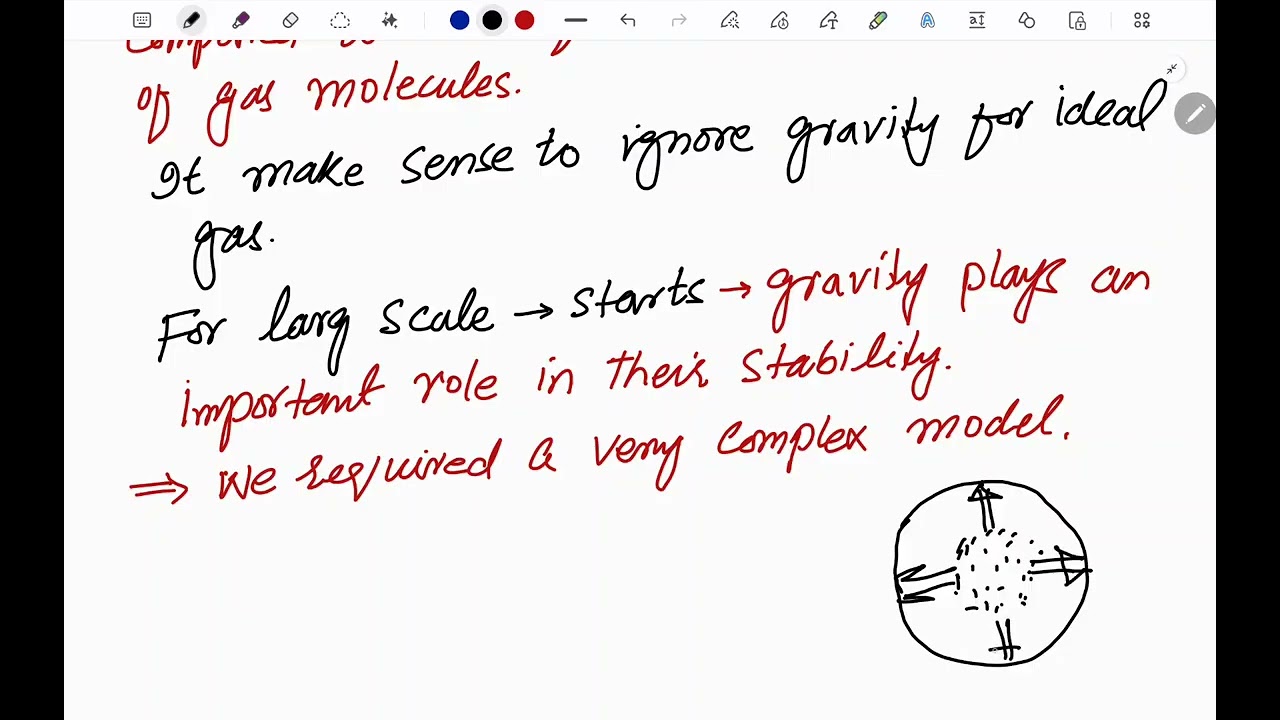 of gas molecules.
It make sense to ignore gravity for ideal
gas.
For larg scale → starts → gravity plays an
important role in their stability.
⇒ We required a very complex model.